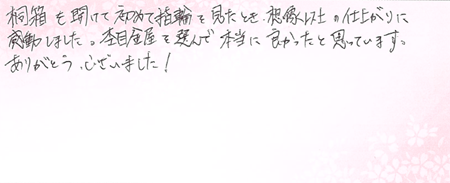 桐箱を開けて初めて指輪を見たとき、想像以上の仕上がりに
感動しました。杢目金屋を選んで本当に良かったと思っています。
ありがとうございました!